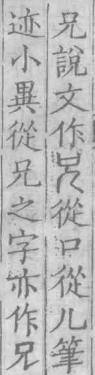 兄說文作兄從口從儿筆
迹小異從兄之字亦作兄